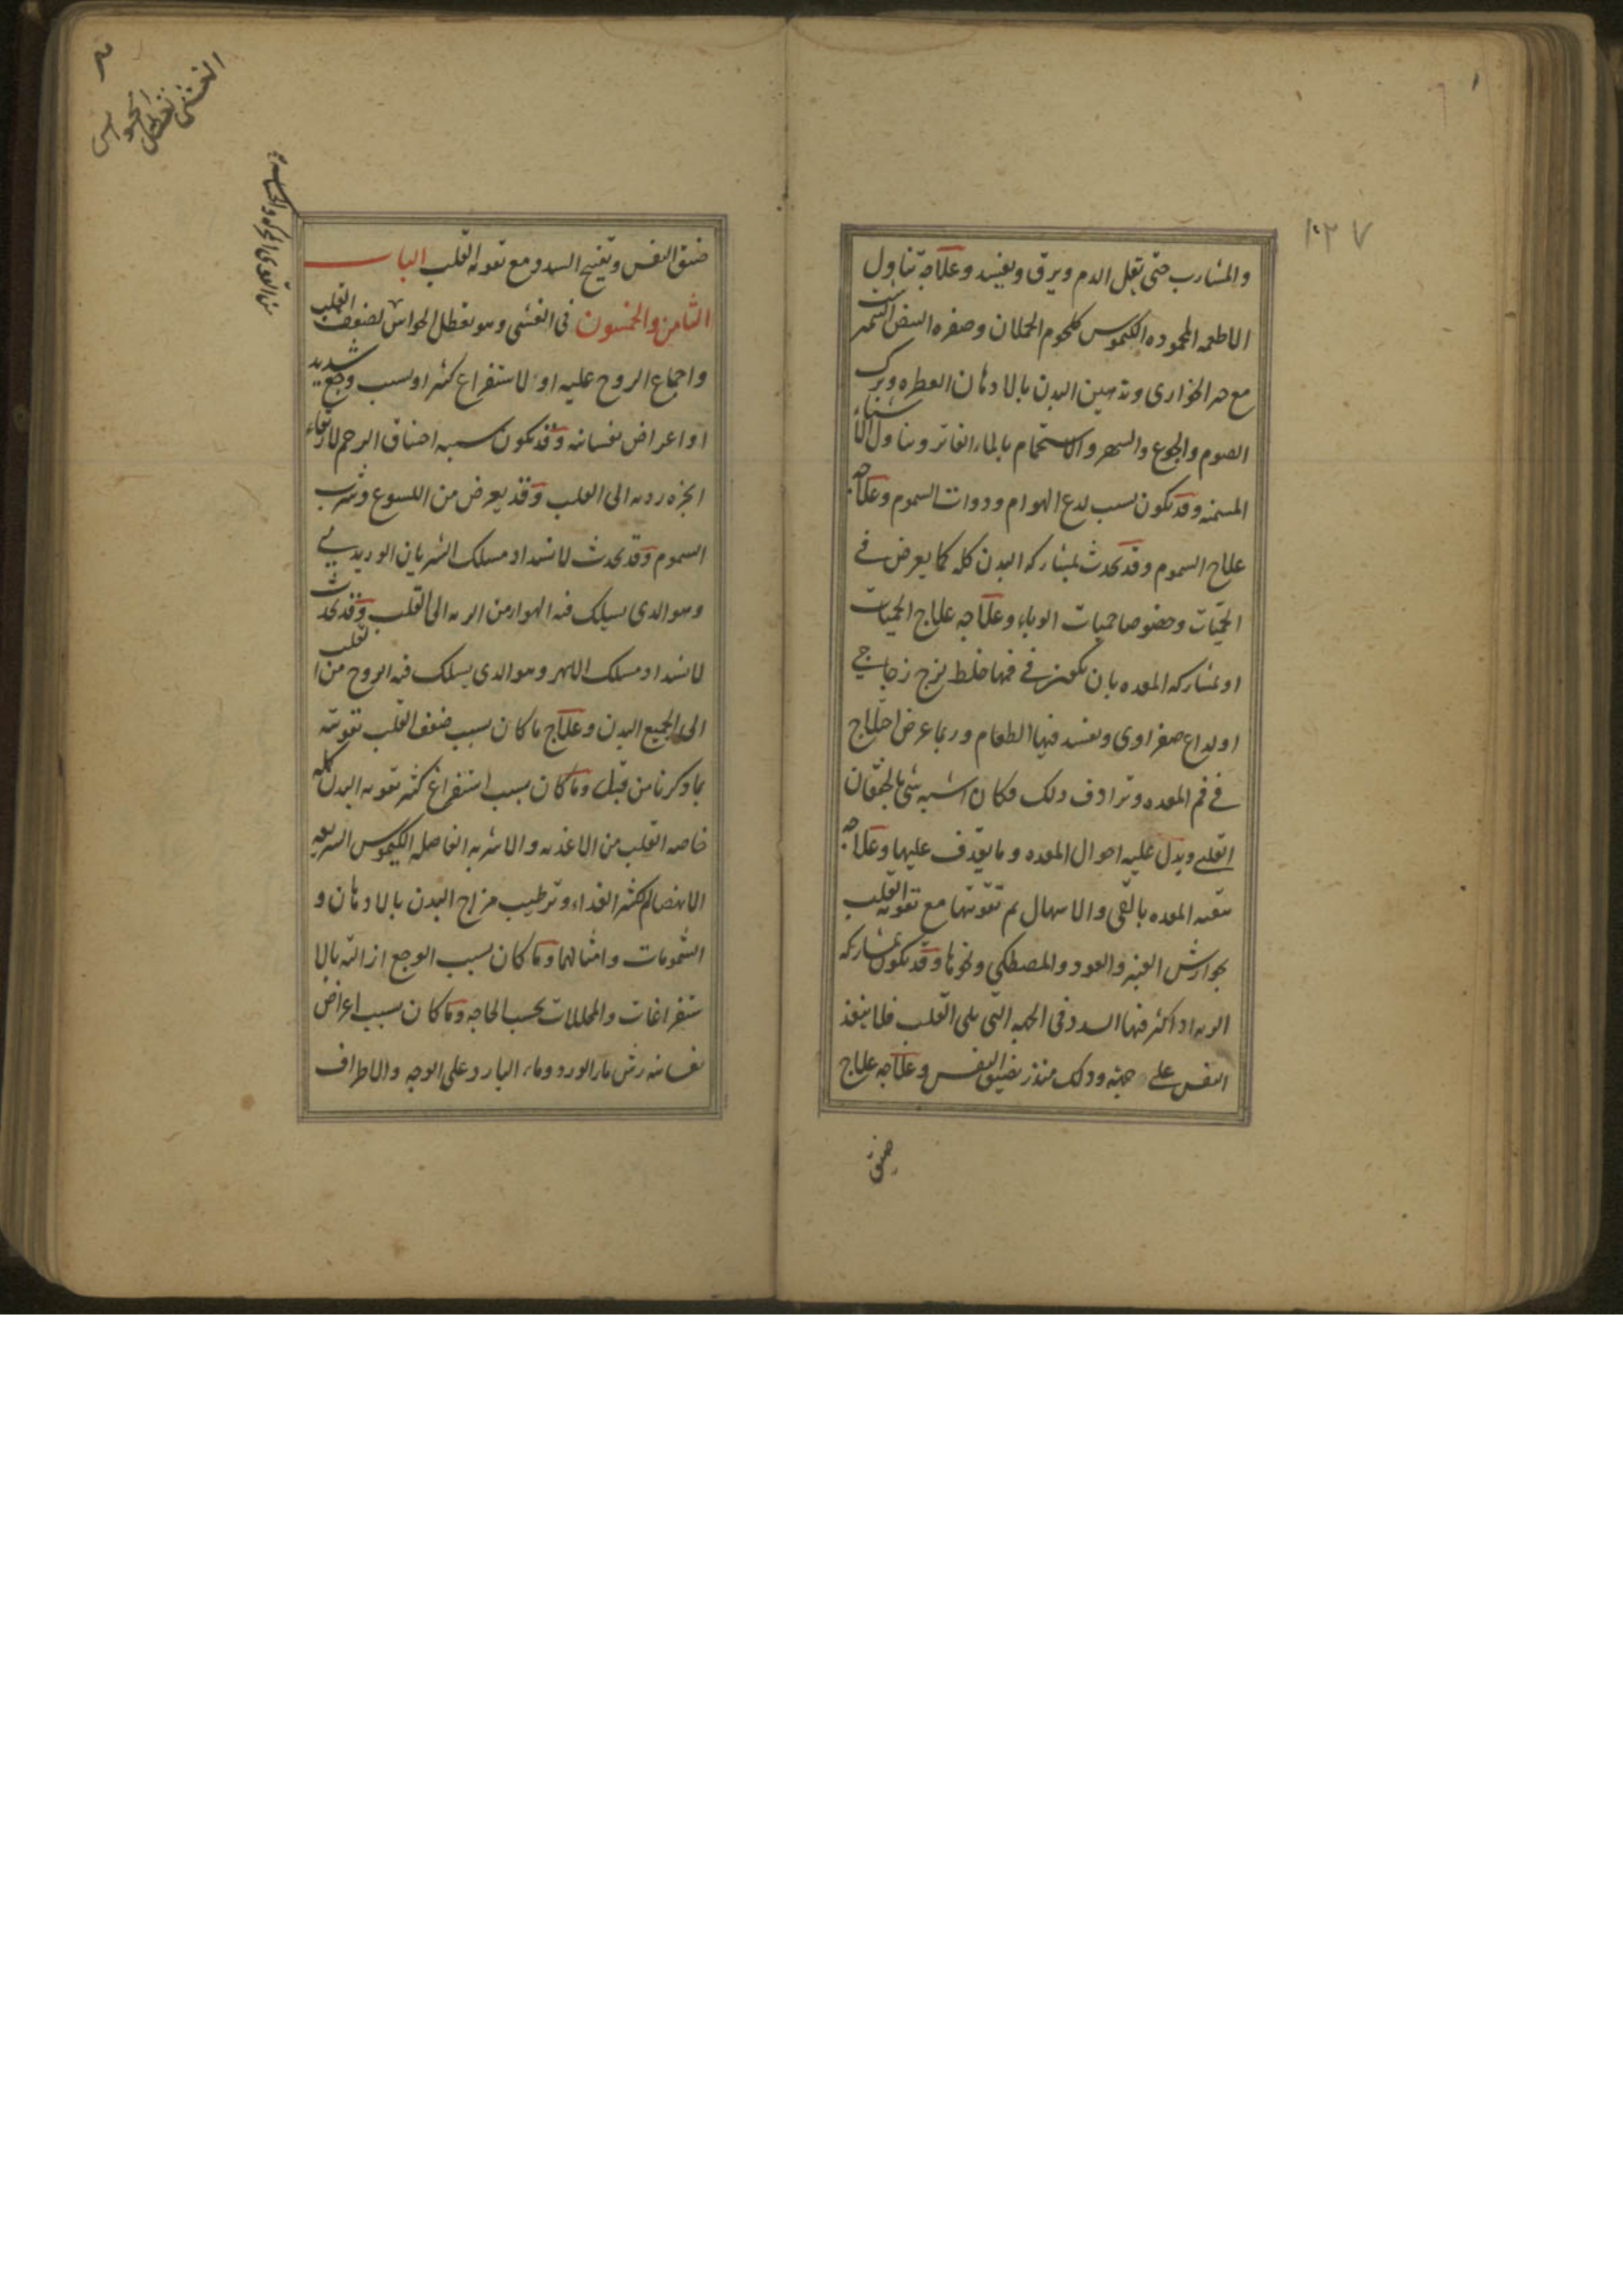 ١٠٢٧
والمشارب حتى يقل الدم ويرق ويفسد وعلاجه تناول
الاطعمه المحموده الكيموس كلحوم الحملان وصفره البيض
مع خبز الحواري وتدهين البدن بالادهان العطره وترك
الصوم والجوع والسهر والاستحمام بالماء الفاتر وتناول الاشياء
المسمنه وقد يكون بسبب لدغ الهوام وذوات السموم وعلاجه
علاج السموم وقد يحدث بمشاركه البدن كله كما يعرض في
الحميات وخصوصا حميات الوباء وعلاجه علاج الحميات
او بمشاركه المعده بان يكون في فمها خلط لزج زجاجي
او لداع صفراوي ويفسد فيها الطعام وربما عرض اختلاج
في فم المعده وترادف ذلك فكان اشبه شي بالخفقان
القلبي ويدل عليه احوال المعده وما يقذف عليها وعلاجه
تنقيه المعده بالقي والاسهال ثم تقويتها مع تقويه القلب
بجوارش العنبر والعود والمصطكي ونحوها وقد يكون بمشاركه
الريه اذا كثر فيها السدد في الجهه التي تلي القلب فلا ينفذ
النفس على جهته وذلك منذر بضيق النفس وعلاجه علاج
ضيق
الغشى
تعطل
الحواس
ضيق النفس وتفتيح السدد مع تقويه القلب الباب
الثامن والخمسون في الغشي وهو تعطل الحواس لضعف القلب
واجماع الروح عليه او لاستفراغ كثير او بسبب وجع شديد
او اعراض نفسانيه وقد يكون سببه اختناق الرحم لارتقاء
ابخره رديه الى القلب وقد يعرض من اللسوع وشرب
السموم وقد يحدث لانسداد مسلك الشريان الوريدي
وهو الذي يسلك فيه الهوا من الريه الى القلب وقد يحدث
لانسداد مسلك الابهر وهو الذي يسلك فيه الروح من القلب
الى جميع البدن وعلاج ما كان بسبب ضعف القلب تقويته
بما ذكرنا من قبل وما كان بسبب استفراغ كثير تقويه البدن كله
خاصه القلب من الاغذيه والاشربه الفاضله الكيموس السريعه
الانهضام الكثير الغذاء وترطيب مزاج البدن بالادهان و
الشمومات وامثالهما وما كان بسبب الوجع ازالته بالا
ستفراغات والمحللات بحسب الحاجه وما كان بسبب اعراض
نفسانيه رش ماء الورد وماء البارد على الوجه والاطراف